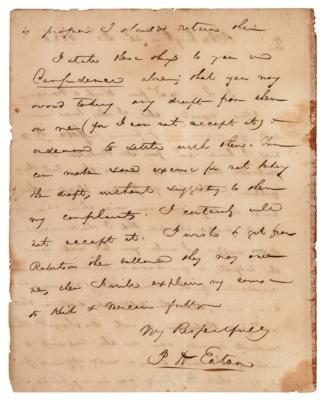 is proper I should retain their
I state these things to you in
Confidence alone; that you may
avoid taking any draft from them
on me (for I can not accept it) &
endeavor to settle with them. You
can make some excuse for not taking
the draft, without suggesting to them
my complaints. I certainly will
not accept it. I wish to get from
Robertson the ballance they may owe
me, then I will explain my course
to & fully
Very Respectfully
Eaton